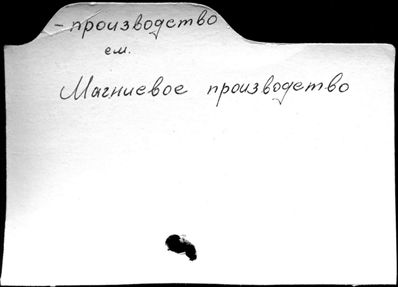 - производство
см.
Магниевое производство